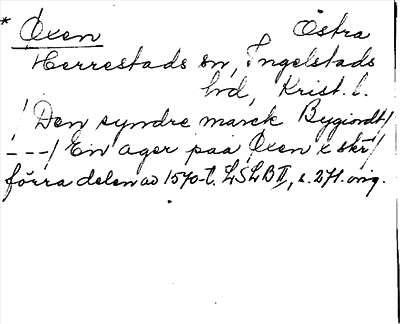 * Öxen Östra
Herrestads sn, Ingelstads
hd, Krist. l.
/ Den syndre marck Bygiordt /
- - - / En ager paa Öxen x skr /
förra delen av 1570-t. LSLB II, s. 271. orig.